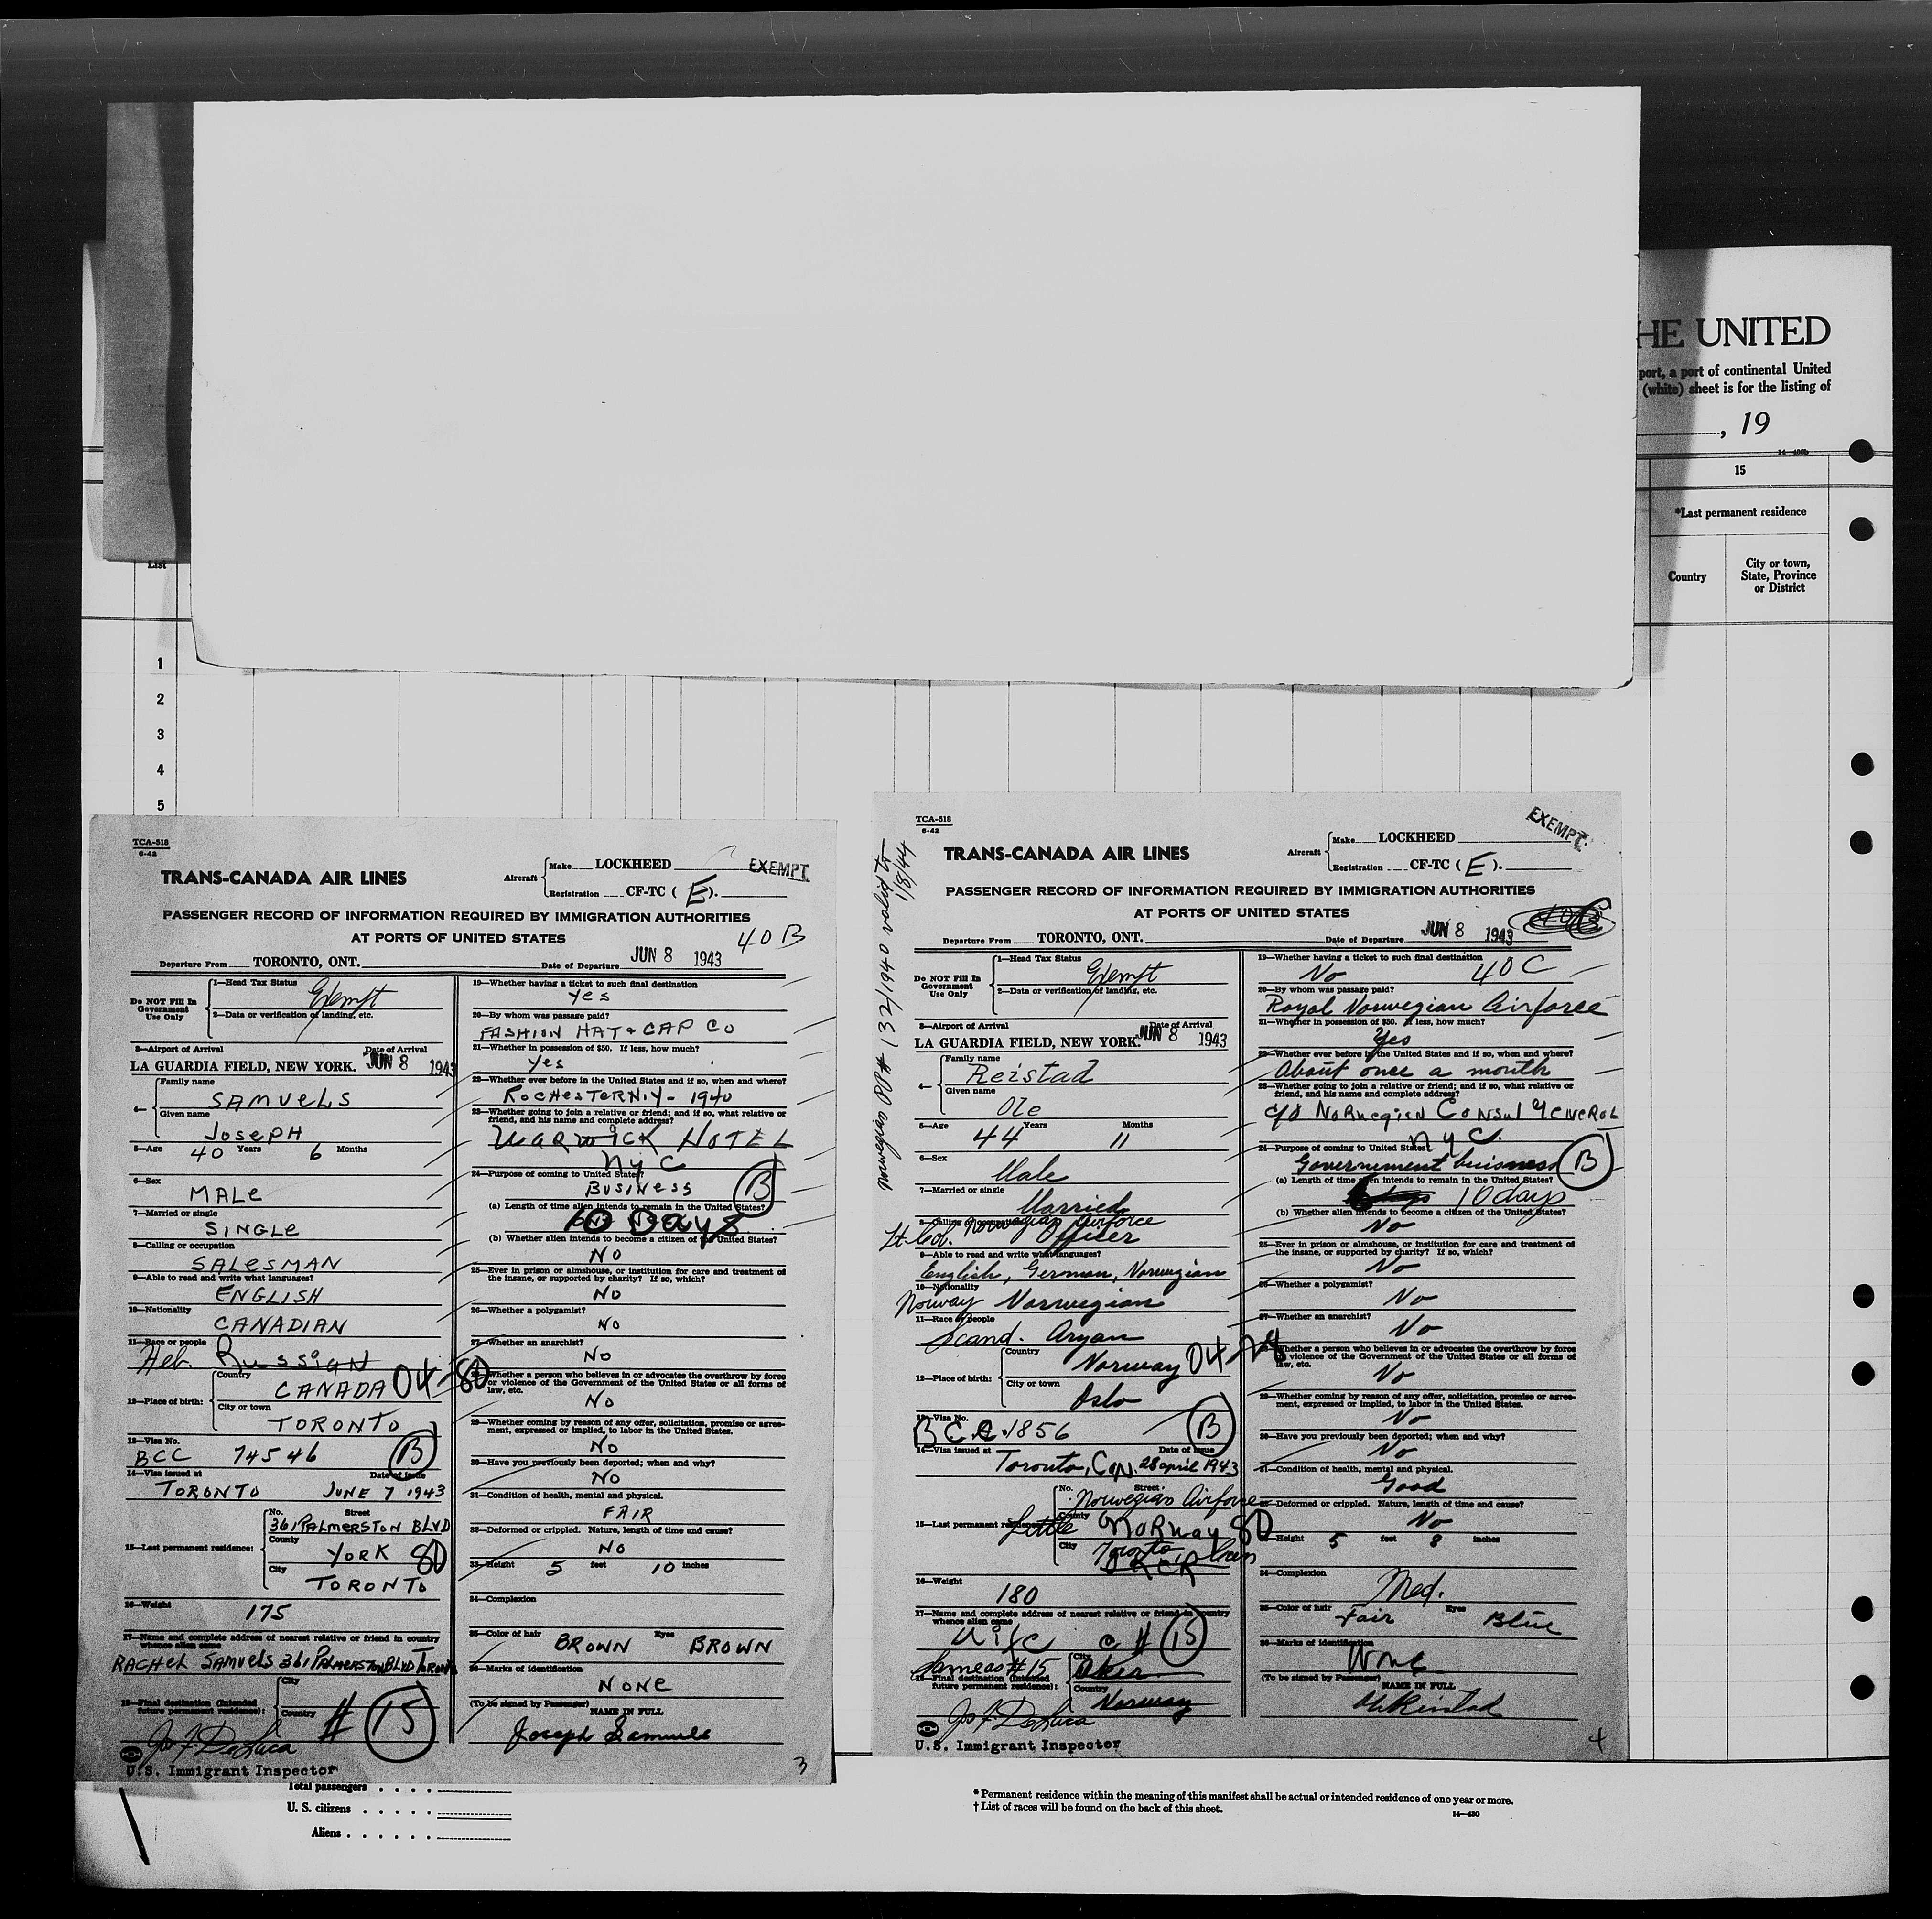 HE UNITED
port, a port of continental United
(white) sheet is for the listing of
, 19
14—430b
15
*Last permanent residence
Country
City or town,
State, Province
or District
List
1
2
3
4
5
TCA-518
6-42
TRANS-CANADA AIR LINES
Aircraft
Make LOCKHEED
Registration CF-TC ( E ).
EXEMPT
PASSENGER RECORD OF INFORMATION REQUIRED BY IMMIGRATION AUTHORITIES
AT PORTS OF UNITED STATES
40 B
Departure From TORONTO, ONT.
Date of Departure JUN 8 1943
Do NOT Fill In
Government
Use Only
1—Head Tax Status
Exempt
2—Data or verification of landing, etc.
3—Airport of Arrival
Date of Arrival
LA GUARDIA FIELD, NEW YORK. JUN 8 1943
4—
Family name
SAMUELS
Given name
JOSEPH
5—Age 40 Years 6 Months
6—Sex
MALE
7—Married or single
SINGLE
8—Calling or occupation
SALESMAN
9—Able to read and write what languages?
ENGLISH
10—Nationality
CANADIAN
11—Race or people
Heb. Russian
12—Place of birth:
Country
CANADA 04-80
City or town
TORONTO
13—Visa No.
BCC 74546 B
14—Visa issued at Date of issue
TORONTO JUNE 7 1943
15—Last permanent residence:
No. Street
361 PALMERSTON BLVD
County
YORK 80
City
TORONTO
16—Weight
175
17—Name and complete address of nearest relative or friend in country
whence alien came
RACHEL SAMUELS 361 PALMERSTON BLVD TORONTO
18—Final destination (Intended
future permanent residence):
City
Country
# 15
Jos F. DeLuca
U.S. Immigrant Inspector
19—Whether having a ticket to such final destination
Yes
20—By whom was passage paid?
FASHION HAT & CAP CO
21—Whether in possession of $50. If less, how much?
Yes
22—Whether ever before in the United States and if so, when and where?
ROCHESTER N.Y. - 1940
23—Whether going to join a relative or friend; and if so, what relative or
friend, and his name and complete address?
WARWICK HOTEL
NYC
24—Purpose of coming to United States?
BUSINESS B
(a) Length of time alien intends to remain in the United States?
10 Days
(b) Whether alien intends to become a citizen of the United States?
NO
25—Ever in prison or almshouse, or institution for care and treatment of
the insane, or supported by charity? If so, which?
NO
26—Whether a polygamist?
NO
27—Whether an anarchist?
NO
Whether a person who believes in or advocates the overthrow by force
or violence of the Government of the United States or all forms of
law, etc.
NO
29—Whether coming by reason of any offer, solicitation, promise or agree-
ment, expressed or implied, to labor in the United States.
NO
30—Have you previously been deported; when and why?
NO
31—Condition of health, mental and physical.
FAIR
32—Deformed or crippled. Nature, length of time and cause?
NO
33—Height 5 feet 10 inches
34—Complexion
35—Color of hair BROWN Eyes BROWN
36—Marks of identification
NONE
(To be signed by Passenger)
NAME IN FULL
Joseph Samuels
3
TCA-518
6-42
TRANS-CANADA AIR LINES
Aircraft
Make LOCKHEED
Registration CF-TC ( E ).
EXEMPT
PASSENGER RECORD OF INFORMATION REQUIRED BY IMMIGRATION AUTHORITIES
AT PORTS OF UNITED STATES
Departure From TORONTO, ONT.
Date of Departure JUN 8 1943
Do NOT Fill In
Government
Use Only
1—Head Tax Status
Exempt
2—Data or verification of landing, etc.
3—Airport of Arrival
Date of Arrival
LA GUARDIA FIELD, NEW YORK. JUN 8 1943
4—
Family name
Reistad
Given name
Ole
5—Age 44 Years 11 Months
6—Sex
Male
7—Married or single
Married
8—Calling or occupation
Lt. Col. Norwegian Airforce
Officer
9—Able to read and write what languages?
English, German, Norwegian
10—Nationality
Norway Norwegian
11—Race or people
Scand. Aryan
12—Place of birth:
Country
Norway 04-24
City or town
Oslo
13—Visa No.
BCC 1856 B
14—Visa issued at Date of issue
Toronto, Can. 28 april 1943
15—Last permanent residence:
No. Street
Norwegian Airforce
County
Little Norway 80
City
Toronto
16—Weight
180
17—Name and complete address of nearest relative or friend in country
whence alien came
Wife c # 15
Same as #15
future permanent residence):
City
Aker
Country
Norway
Jos F. DeLuca
U.S. Immigrant Inspector
19—Whether having a ticket to such final destination
No 40 C
20—By whom was passage paid?
Royal Norwegian Airforce
21—Whether in possession of $50. If less, how much?
Yes
22—Whether ever before in the United States and if so, when and where?
About once a month
23—Whether going to join a relative or friend; and if so, what relative or
friend, and his name and complete address?
c/o Norwegian Consul General
NYC.
24—Purpose of coming to United States?
Governement buisness B
(a) Length of time alien intends to remain in the United States?
10 days
(b) Whether alien intends to become a citizen of the United States?
No
25—Ever in prison or almshouse, or institution for care and treatment of
the insane, or supported by charity? If so, which?
No
26—Whether a polygamist?
No
27—Whether an anarchist?
No
Whether a person who believes in or advocates the overthrow by force
or violence of the Government of the United States or all forms of
law, etc.
No
29—Whether coming by reason of any offer, solicitation, promise or agree-
ment, expressed or implied, to labor in the United States.
No
30—Have you previously been deported; when and why?
No
31—Condition of health, mental and physical.
Good
32—Deformed or crippled. Nature, length of time and cause?
No
33—Height 5 feet 8 inches
34—Complexion
Med.
35—Color of hair Fair Eyes Blue
36—Marks of identification
None
(To be signed by Passenger)
NAME IN FULL
Ole Reistad
4
Total passengers . . . .
U. S. citizens . . . . .
Aliens . . . . . .
* Permanent residence within the meaning of this manifest shall be actual or intended residence of one year or more.
† List of races will be found on the back of this sheet.
14—430